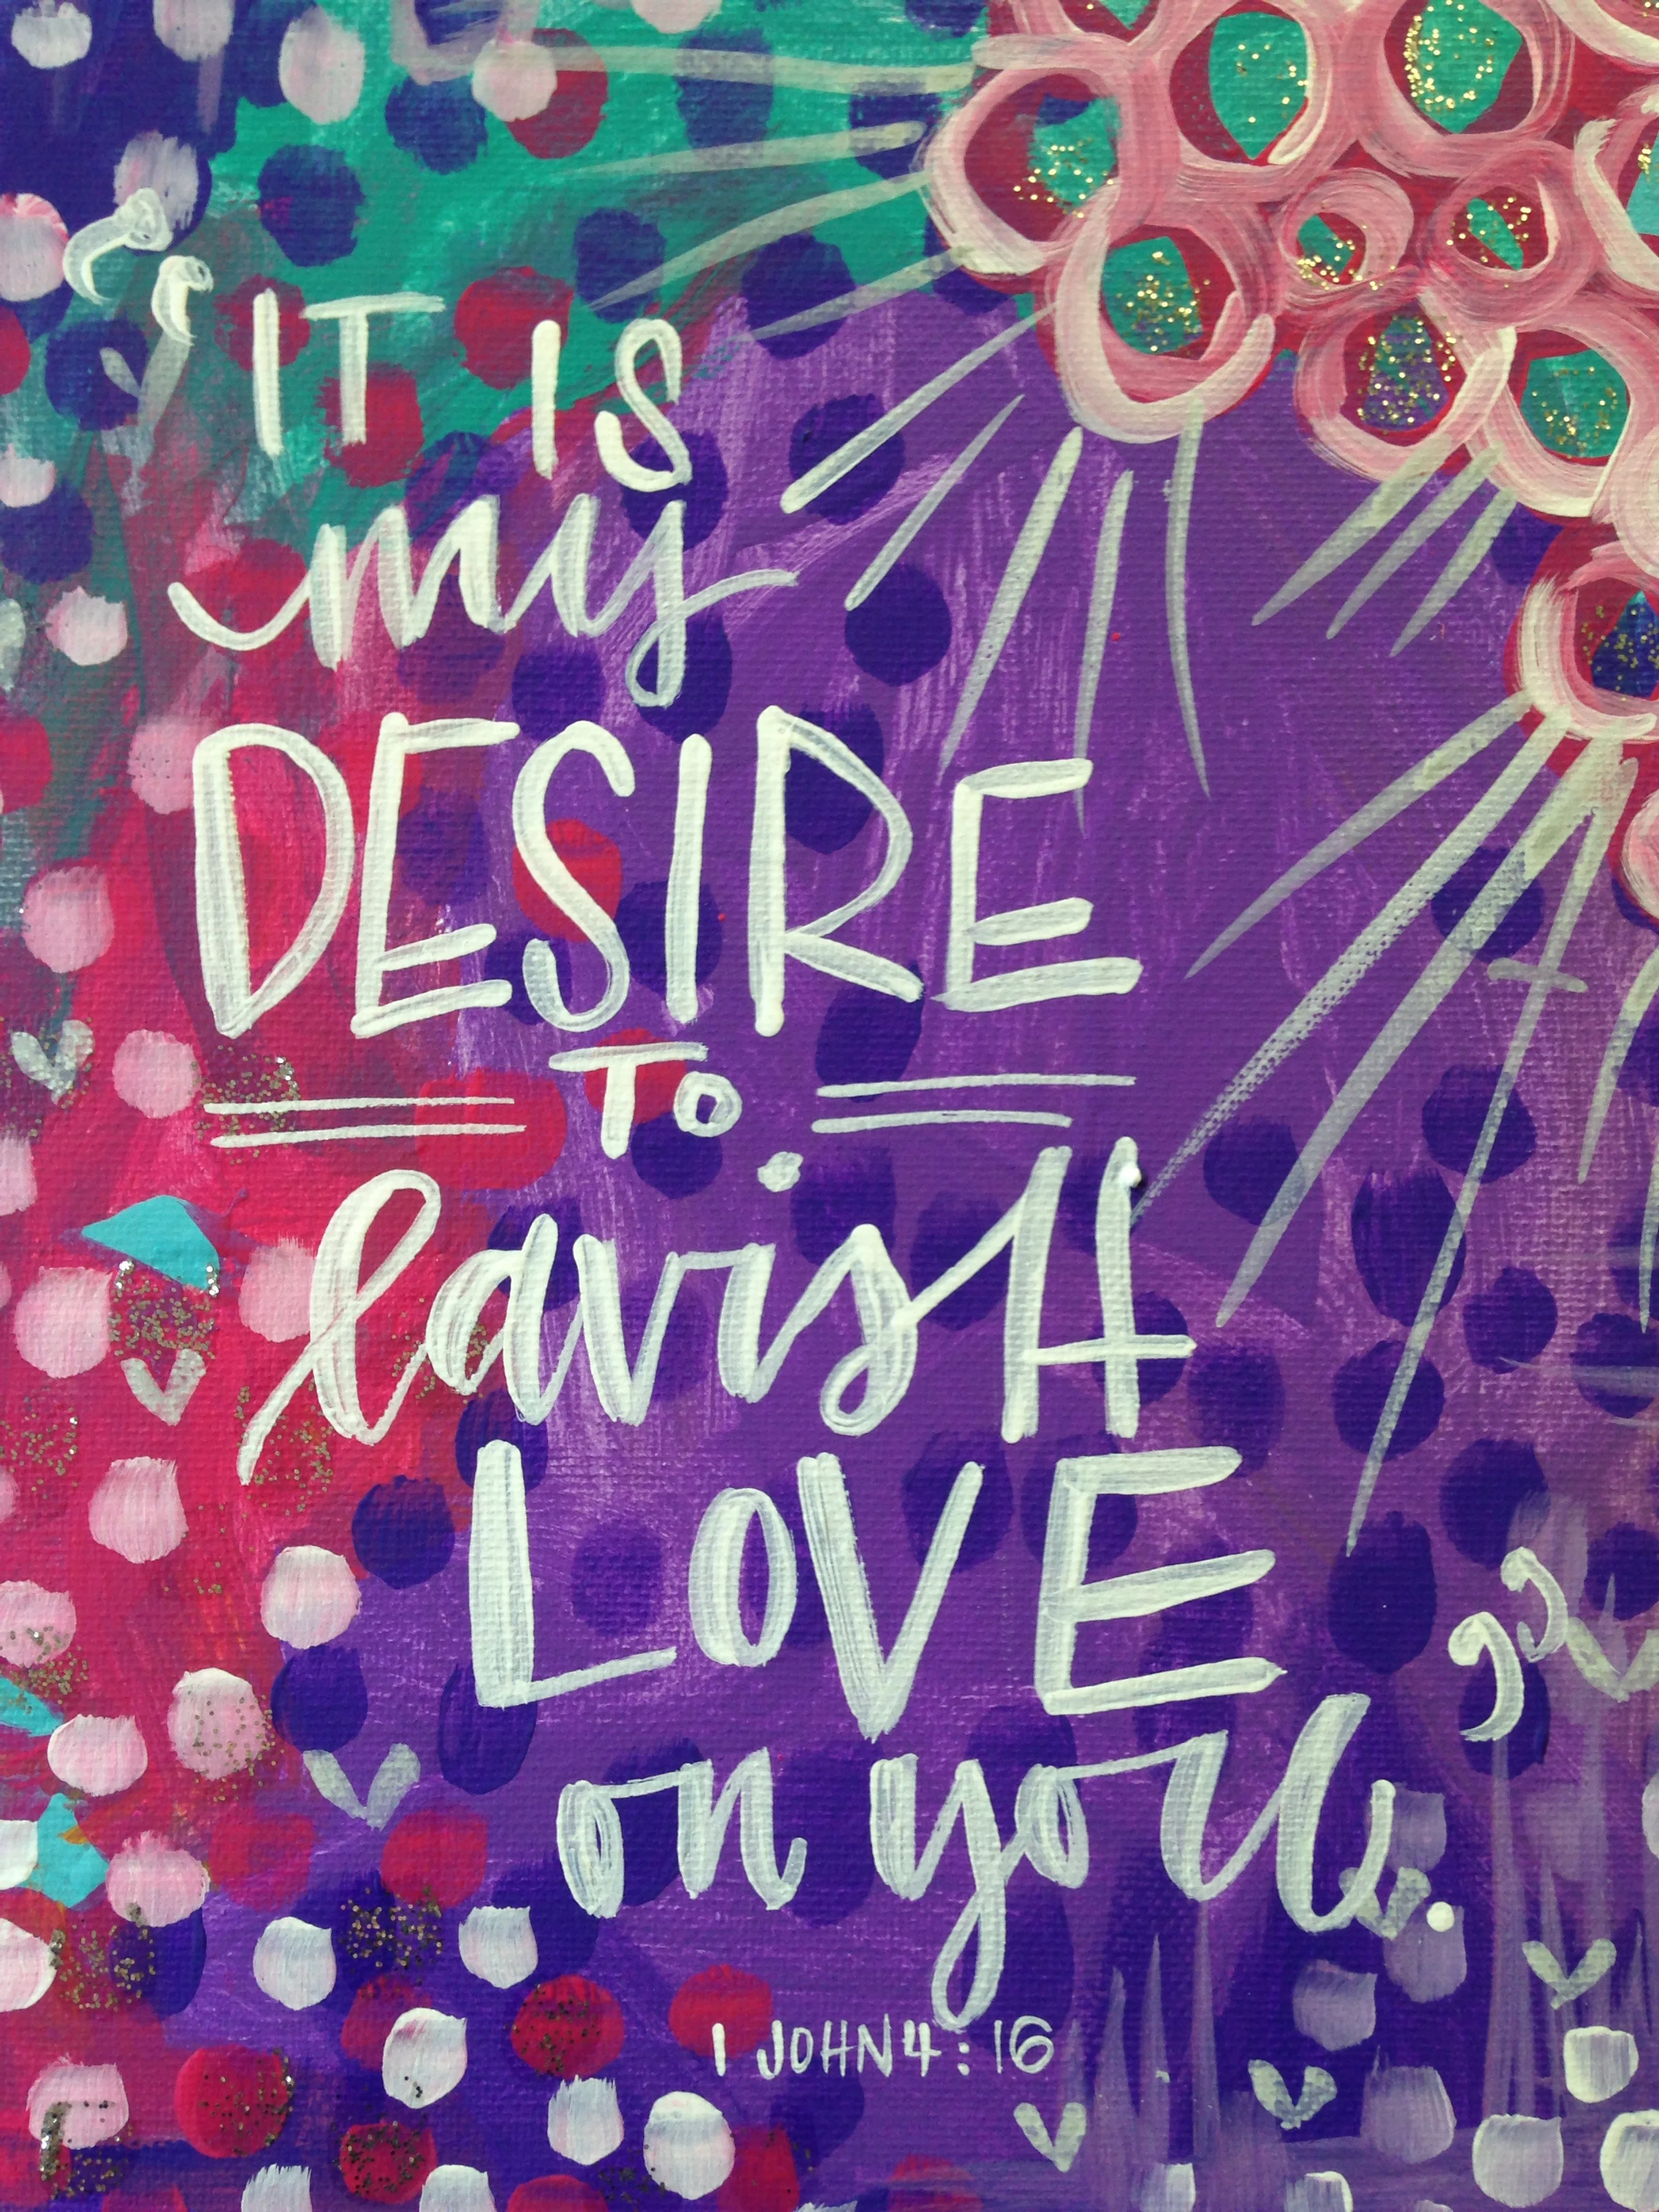 "IT IS
my
DESIRE
TO
lavisH
LOVE
on you."
1 JOHN 4:16